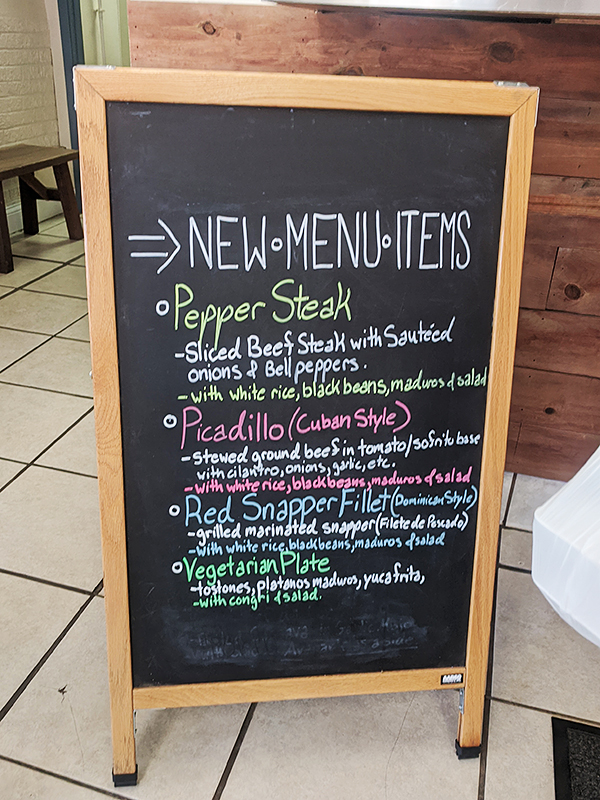 ⇒ NEW • MENU • ITEMS
○ Pepper Steak
-Sliced Beef Steak with Sautéed
onions & Bell peppers.
-with white rice, black beans, maduros & salad
○ Picadillo (Cuban Style)
-stewed ground beef in tomato/sofrito base
with cilantro, onions, garlic, etc.
-with white rice, black beans, maduros & salad
○ Red Snapper Fillet (Dominican Style)
-grilled marinated snapper (Filete de Pescado)
-with white rice, black beans, maduros & salad
○ Vegetarian Plate
-tostones, platanos maduros, yuca frita,
-with congri & salad.